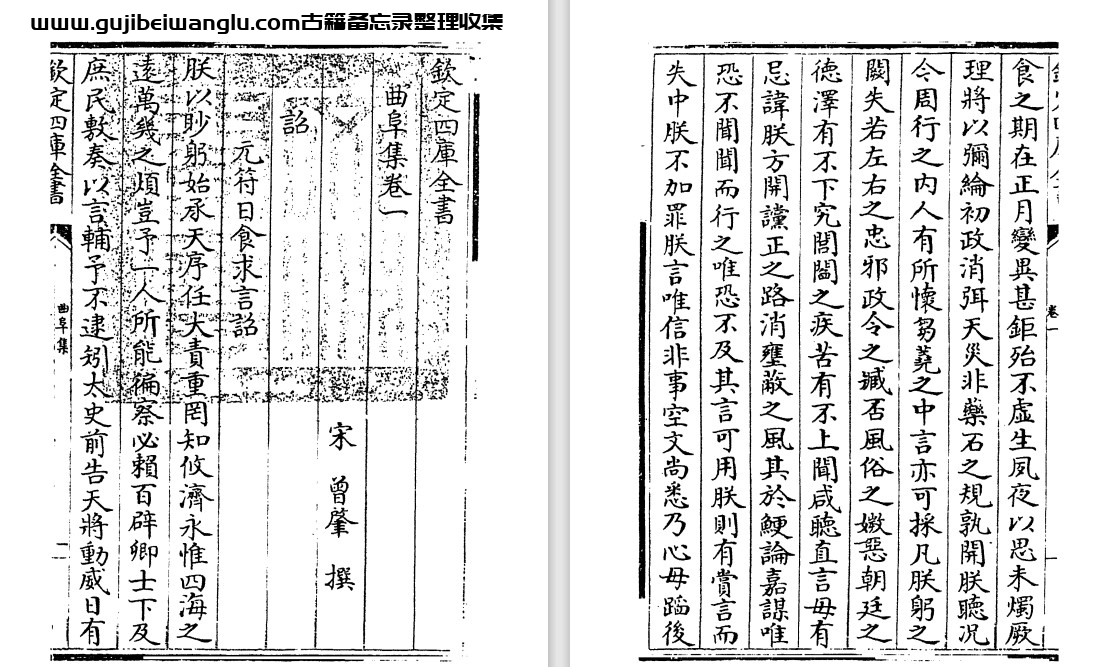 www.gujibeiwanglu.com古籍备忘录整理收集
欽定四庫全書
曲阜集卷一
宋 曾肇 撰
詔
元符日食求言詔
朕以眇躬始承天序任大責重罔知攸濟永惟四海之
遠萬幾之煩豈予一人所能徧察必賴百辟卿士下及
庶民敷奏以言輔予不逮矧太史前告天將動威日有
欽定四庫全書
曲阜集
一
食之期在正月變異甚鉅殆不虛生夙夜以思未燭厥
理將以彌綸初政消弭天災非藥石之規孰開朕聽況
今周行之內人有所懷芻蕘之中言亦可採凡朕躬之
闕失若左右之忠邪政令之臧否風俗之媺惡朝廷之
德澤有不下究閭閻之疾苦有不上聞咸聽直言毋有
忌諱朕方開讜正之路消壅蔽之風其於鯁論嘉謀唯
恐不聞聞而行之唯恐不及其言可用朕則有賞言而
失中朕不加罪朕言唯信非事空文尚悉乃心毋蹈後
卷一